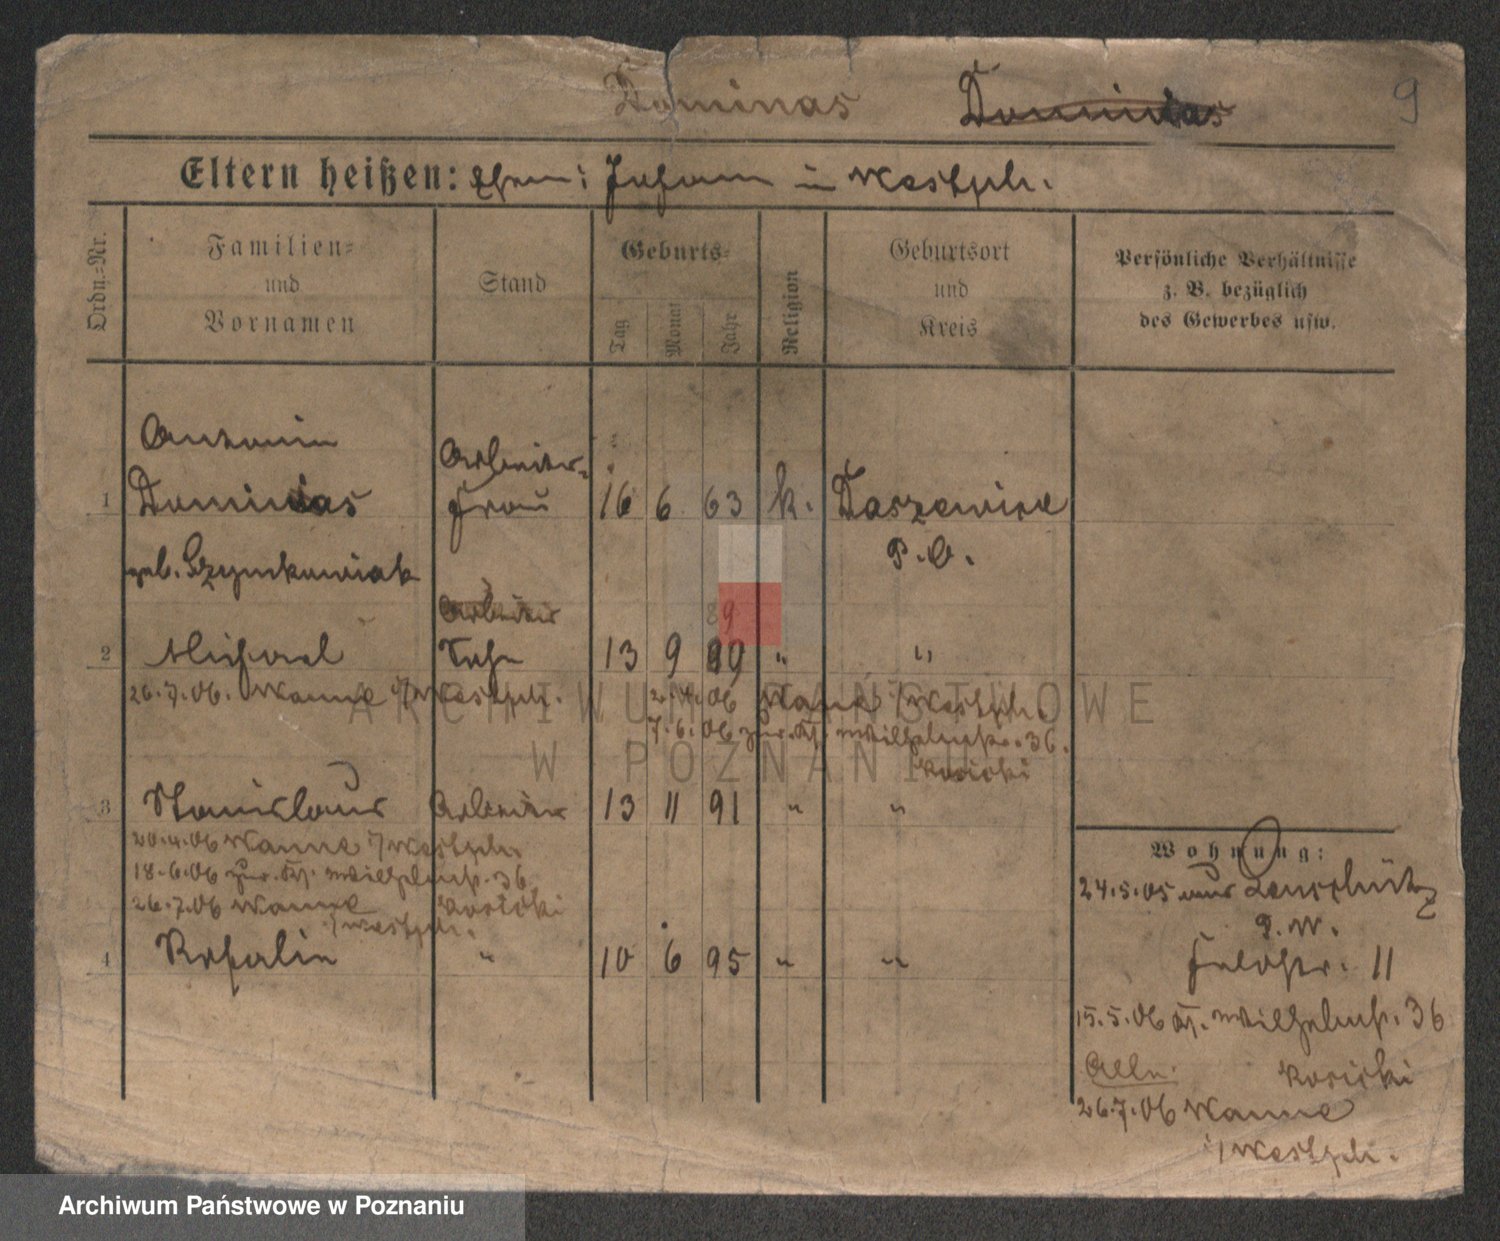 Dominas Dominias 9
Eltern heißen: Ehem: Johann in Westph.
Ordn.=Nr.
Familien=
und
Vornamen
Stand
Geburts=
Tag
Monat
Jahr
Religion
Geburtsort
und
Kreis
Persönliche Verhältnisse
z. B. bezüglich
des Gewerbes usw.
Antonin
Arbeiter-
1 Dominias Frau 16 6 63 k. Daszewice
P. O.
geb. Szymkowiak
Arbeiter 89
2 Michael Sohn 13 9 89 " "
26.7.06. Wanne i/Westph. 2.4.06 Wanne i/Westph.
7.6.06 zur. Kl. Wilhelmstr. 36.
Kosicki
3 Stanislaus Arbeiter 13 11 91 " "
20.4.06 Wanne i/Westph.
18.6.06 zur. Kl. Wilhelmstr. 36
26.7.06 Wanne Kosicki
i/Westph.
4 " 10 6 95 " "
Wohnung:
24.5.05 aus
P. W.
Feldstr. 11
15.5.06 Kl. Wilhelmstr. 36
Kosicki
26.7.06 Wanne
i/Westph.
ARCHIWUM PAŃSTWOWE
W POZNANIU
Archiwum Państwowe w Poznaniu